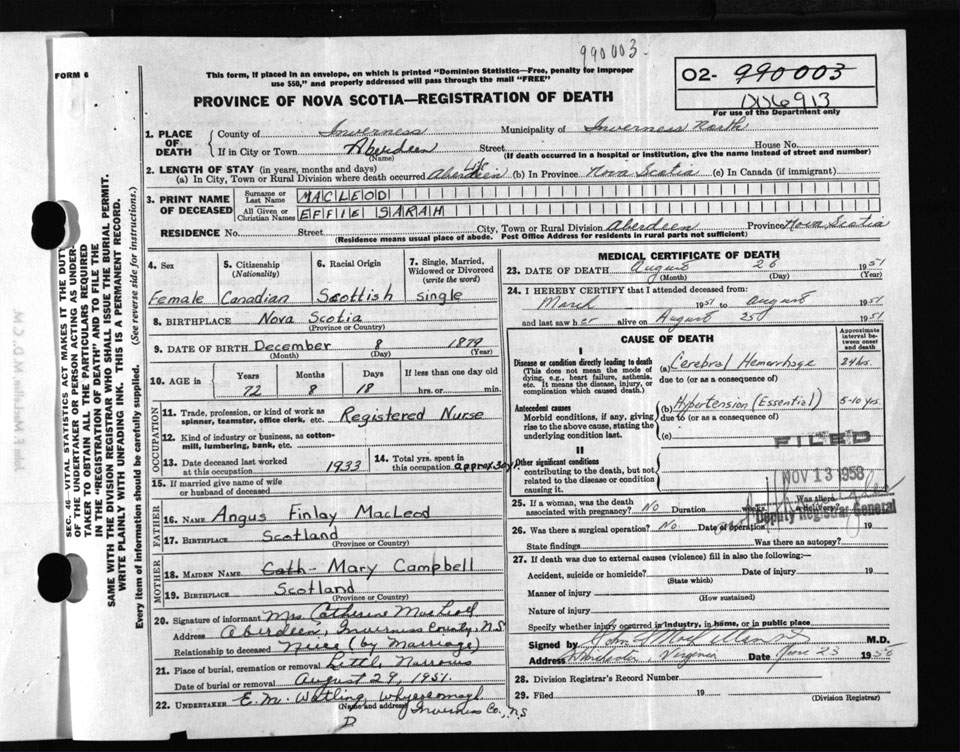 990003.
FORM 6
This form, if placed in an envelope, on which is printed "Dominion Statistics—Free, penalty for improper
use $50," and properly addressed will pass through the mail "FREE"
PROVINCE OF NOVA SCOTIA—REGISTRATION OF DEATH
O2- 990003
006913
For use of the Department only
1. PLACE OF DEATH
County of Inverness Municipality of Inverness North
If in City or Town Aberdeen Street House No.
(Name) (If death occurred in a hospital or institution, give the name instead of street and number)
2. LENGTH OF STAY (in years, months and days) Life
(a) In City, Town or Rural Division where death occurred Aberdeen (b) In Province Nova Scotia (c) In Canada (if immigrant)
3. PRINT NAME OF DECEASED
Surname or Last Name MACLEOD
All Given or Christian Names EFFIE SARAH
RESIDENCE No. Street City, Town or Rural Division Aberdeen Province Nova Scotia
(Residence means usual place of abode. Post Office Address for residents in rural parts not sufficient)
4. Sex
Female
5. Citizenship (Nationality)
Canadian
6. Racial Origin
Scottish
7. Single, Married, Widowed or Divorced (write the word)
single
8. BIRTHPLACE Nova Scotia
(Province or Country)
9. DATE OF BIRTH December 8 1879
(Month) (Day) (Year)
10. AGE in Years Months Days If less than one day old
72 8 18 hrs. or min.
OCCUPATION
11. Trade, profession, or kind of work as spinner, teamster, office clerk, etc. Registered Nurse
12. Kind of industry or business, as cotton-mill, lumbering, bank, etc.
13. Date deceased last worked at this occupation 1933
14. Total yrs. spent in this occupation approx. 30 yr
15. If married give name of wife or husband of deceased
FATHER
16. NAME Angus Finlay MacLeod
17. BIRTHPLACE Scotland
(Province or Country)
MOTHER
18. MAIDEN NAME Cath- Mary Campbell
19. BIRTHPLACE Scotland
(Province or Country)
20. Signature of informant Mrs Catherine MacLeod
Address Aberdeen, Inverness County, N.S
Relationship to deceased Niece (by Marriage)
21. Place of burial, cremation or removal Little Narrows
Date of burial or removal August 29, 1951.
22. UNDERTAKER E. M. Watling, Whycocomagh
(Name and address) Inverness Co., N.S
D
MEDICAL CERTIFICATE OF DEATH
23. DATE OF DEATH August 26 1951
(Month) (Day) (Year)
24. I HEREBY CERTIFY that I attended deceased from:
March 1951 to August 1951
and last saw her alive on August 25 1951
CAUSE OF DEATH
Approximate interval between onset and death
I
Disease or condition directly leading to death
(This does not mean the mode of dying, e.g., heart failure, asthenia, etc. It means the disease, injury, or complication which caused death.)
(a) Cerebral Hemorrhage 24 hrs.
due to (or as a consequence of)
Antecedent causes
Morbid conditions, if any, giving rise to the above cause, stating the underlying condition last.
(b) Hypertension (Essential) 5-10 yrs.
due to (or as a consequence of)
(c)
II
Other significant conditions
contributing to the death, but not related to the disease or condition causing it.
FILED
NOV 13 1958
Deputy Registrar General
25. If a woman, was the death associated with pregnancy? No Duration Was there a delivery?
26. Was there a surgical operation? No Date of operation 19
State findings Was there an autopsy?
27. If death was due to external causes (violence) fill in also the following:—
Accident, suicide or homicide? Date of injury 19
(State which)
Manner of injury
(How sustained)
Nature of injury
Specify whether injury occurred in industry, in home, or in public place
Signed by M.D.
Address Virginia Date June 23 1956
28. Division Registrar's Record Number
29. Filed 19
(Division Registrar)
SEC. 46—VITAL STATISTICS ACT MAKES IT THE DUTY
OF THE UNDERTAKER OR PERSON ACTING AS UNDER-
TAKER TO OBTAIN ALL THE PARTICULARS REQUIRED
IN THE "REGISTRATION OF DEATH" AND TO FILE THE
SAME WITH THE DIVISION REGISTRAR WHO SHALL ISSUE THE BURIAL PERMIT.
WRITE PLAINLY WITH UNFADING INK. THIS IS A PERMANENT RECORD.
Every item of information should be carefully supplied. (See reverse side for instructions.)